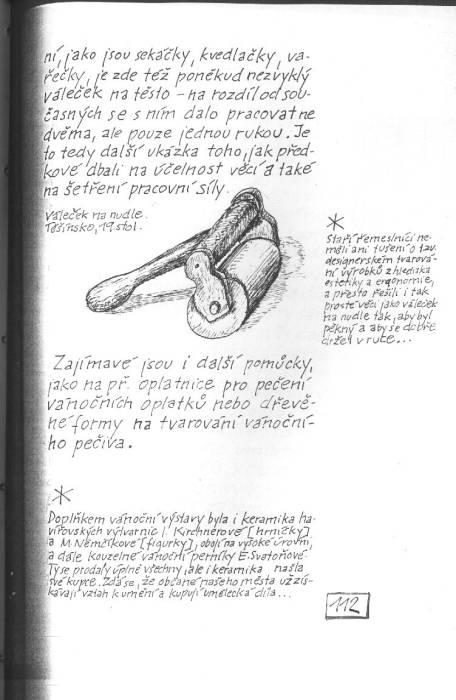 ní, jako jsou sekáčky, kvedlačky, va-
řečky, je zde též poněkud nezvyklý
váleček na těsto – na rozdíl od sou-
časných se s ním dalo pracovat ne
dvěma, ale pouze jednou rukou. Je
to tedy další ukázka toho, jak před-
kové dbali na účelnost věcí a také
na šetření pracovní síly.
Váleček na nudle.
Těšínsko, 19. stol.
*
Staří řemeslníci ne-
měli ani tušení o tzv.
designerském tvarová-
ní výrobků z hlediska
estetiky a ergonomie,
a přesto řešili i tak
prosté věci jako váleček
na nudle tak, aby byl
pěkný a aby se dobře
držel v ruce...
Zajímavé jsou i další pomůcky,
jako na př. oplatnice pro pečení
vánočních oplatků nebo dřevě-
né formy na tvarování vánoční-
ho pečiva.
*
Doplňkem vánoční výstavy byla i keramika ha-
vířovských výtvarnic I. Kirchnerové [hrníčky]
a M. Němčíkové [figurky], obojí na vysoké úrovni,
a dále kouzelné vánoční perníky E. Svatoňové
Ty se prodaly úplně všechny, ale i keramika našla
své kupce. Zdá se, že občané našeho města už zís-
kávají vztah k umění a kupují umělecká díla...
112